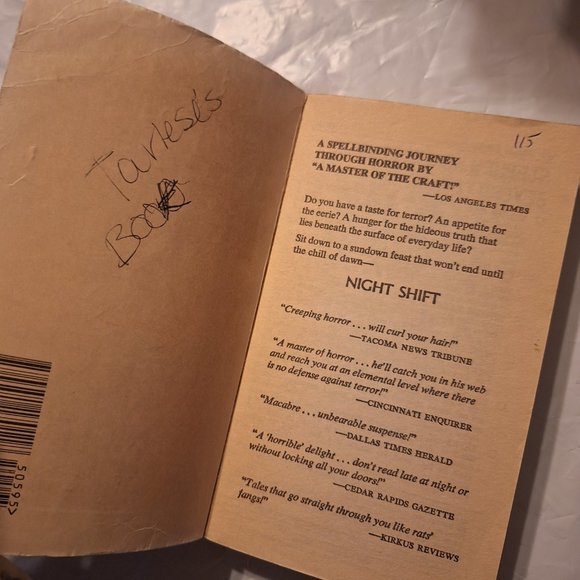 Tarlese's
Book
50595>
115
A SPELLBINDING JOURNEY
THROUGH HORROR BY
"A MASTER OF THE CRAFT!"
—LOS ANGELES TIMES
Do you have a taste for terror? An appetite for
the eerie? A hunger for the hideous truth that
lies beneath the surface of everyday life?
Sit down to a sundown feast that won't end until
the chill of dawn—
NIGHT SHIFT
"Creeping horror . . . will curl your hair!"
—TACOMA NEWS TRIBUNE
"A master of horror . . . he'll catch you in his web
and reach you at an elemental level where there
is no defense against terror!"
—CINCINNATI ENQUIRER
"Macabre . . . unbearable suspense!"
—DALLAS TIMES HERALD
"A 'horrible' delight . . . don't read late at night or
without locking all your doors!"
—CEDAR RAPIDS GAZETTE
"Tales that go straight through you like rats'
fangs!"
—KIRKUS REVIEWS